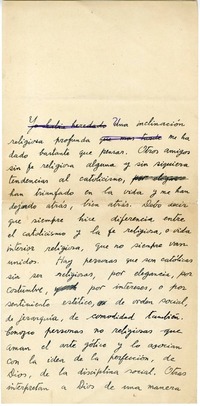 Yo había heredado Una inclinación
religiosa profunda que mas tarde me ha
dado bastante que pensar. Otros amigos
sin fe religiosa alguna y sin siquiera
tendencias al catolicismo,
han triunfado en la vida y me han
dejado atrás, bien atrás. Debo decir
que siempre hice diferencia entre
el catolicismo y la fe religiosa o vida
interior religiosa, que no siempre van
unidos. Hay personas que son católicas
sin ser religiosas, por elegancia, por
costumbre, por intereses, o por
sentimiento estético, o de orden social,
de jerarquía, de comodidad también.
Conozco personas no religiosas que
aman el arte gótico y lo asocian
con la idea de la perfección, de
Dios, de la disciplina social. Otras
interpretan a Dios de una manera